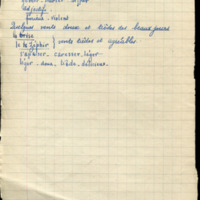 Adjectifs
furieux - violent
Quelques vents doux et tièdes des beaux jours
la brise
le zéphir } vents tièdes et agréables
rafraîchir - caresser, léger
léger - doux, tiède, délicieux.